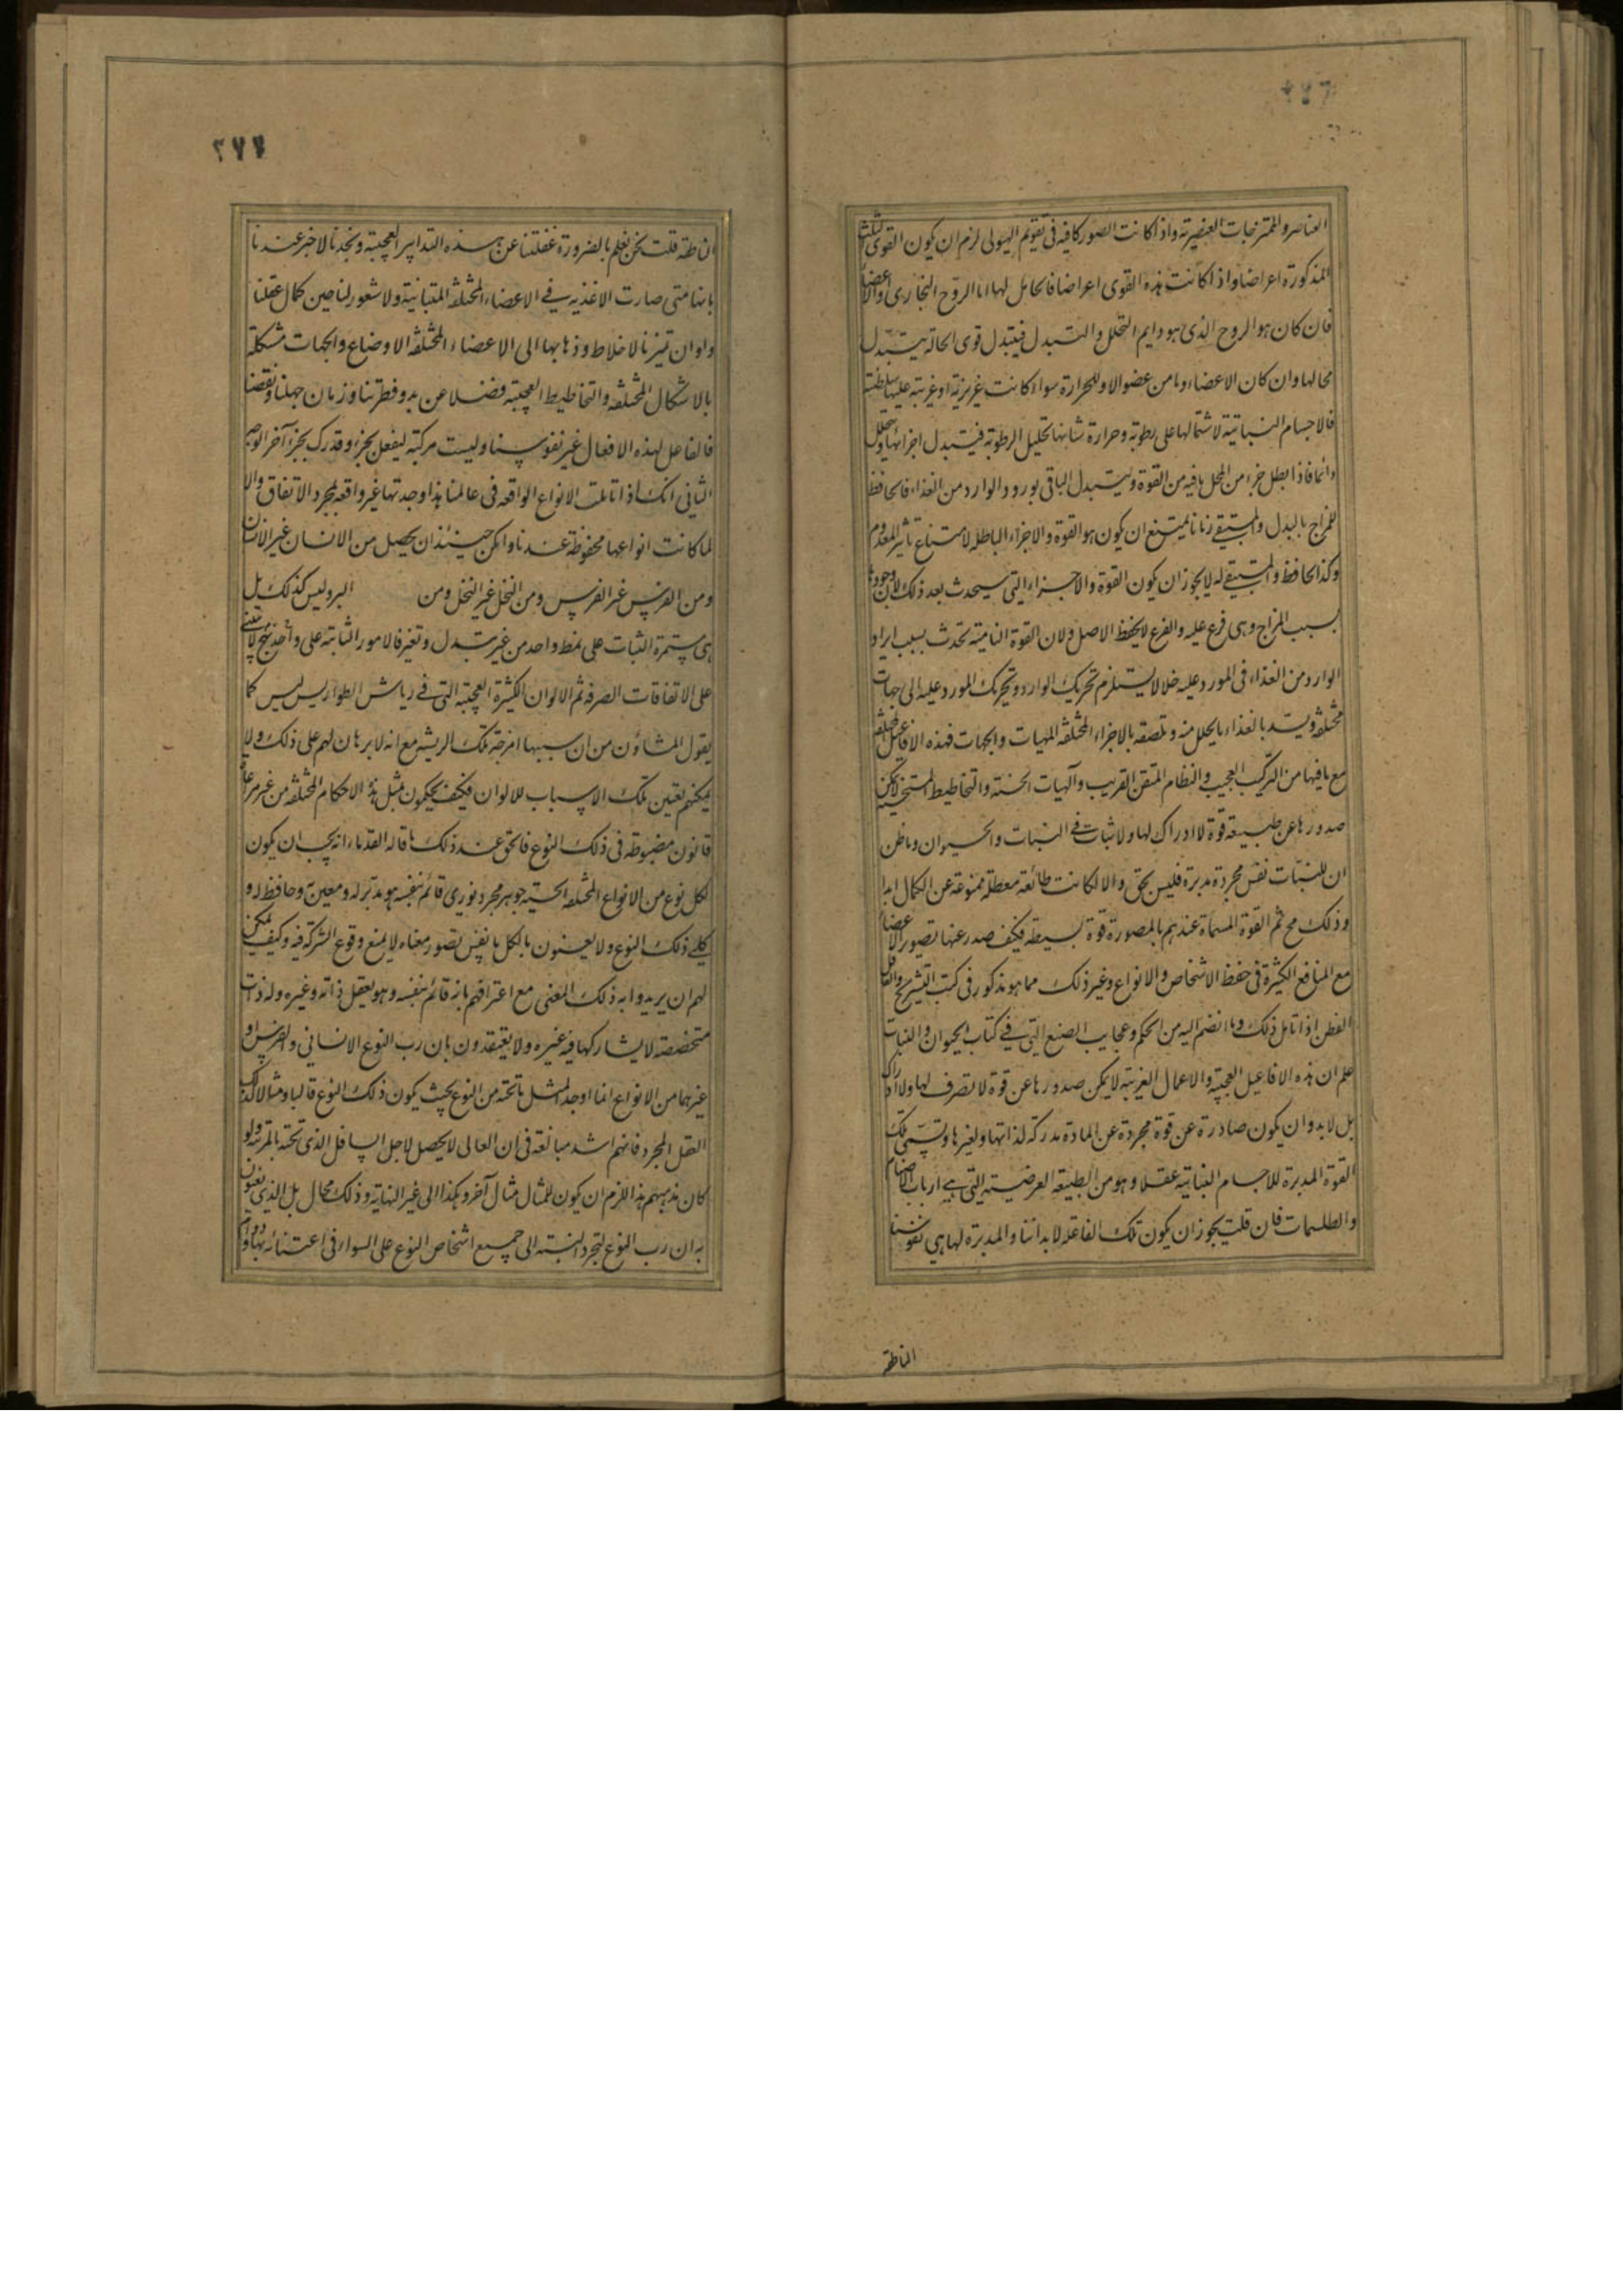 ٢٧٦
العناصر والممتزجات العنصرية واذا كانت الصور كافية فى تقويم الهيولى لزم ان يكون القوى الثلث
المذكورة اعراضا واذا كانت هذه القوى اعراضا فالحامل لها اما الروح البخارى والاعضاء
فان كان هو الروح الذى هو دايم التحلل والتبدل فيتبدل قوى الحالة بتبدل
محالها وان كان الاعضاء وما من عضو الا وللحرارة سواء كانت غريزية او غريبة عليها سلطنة
فالاجسام النباتية لاشتمالها على رطوبة وحرارة شانها تحليل الرطوبة فيتبدل اجزائها ويتحلل
دائما فاذا بطل جزء من المحل بما فيه من القوة ويتبدل الباقى بورود الوارد من الغذاء فالحافظ
للمزاج بالبدل والمستبقى زمانا يمتنع ان يكون هو القوة والاجزاء الباطلة لامتناع تاثير المعدوم
وكذا الحافظ والمستبقى له لا يجوز ان يكون القوة والاجزاء التى سيحدث بعد ذلك لان وجودها
بسبب المزاج وهى فرع عليه والفرع لا يحفظ الاصل ولان القوة النامية تحدث بسبب ايراد
الوارد من الغذاء فى المورد عليه خللا يستلزم تحريك الوارد وتحريك المورد عليه الى جهات
مختلفة ويسد بالغذاء ما يتحلل منه وتلصقه بالاجزاء المختلفة الهيات والجهات فهذه الافاعيل المختلفة
مع ما فيها من التركيب العجيب والنظام المتقن القريب والهيات الحسنة والتخاطيط المستحسنة لا يمكن
صدورها عن طبيعة قوة لا ادراك لها ولا ثبات فى النبات والحيوان وما ظن
ان للنبات نفس مجردة مدبرة فليس بحق والا لكانت ضائعة معطلة ممنوعة عن الكمال ابدا
وذلك مح ثم القوة المسماة عندهم بالمصورة قوة بسيطة فكيف صدر عنها تصوير الاعضاء
مع المنافع الكثيرة فى حفظ الاشخاص والانواع وغير ذلك مما هو مذكور فى كتب التشريح والعاقل
الفطن اذا تامل ذلك وما انضم اليه من الحكم وعجايب الصنع التى فى كتاب الحيوان والنبات
علم ان هذه الافاعيل العجيبة والاعمال الغريبة لا يمكن صدورها عن قوة لا تصرف لها ولا ادراك
بل لا بد وان يكون صادرة عن قوة مجردة عن المادة مدركة لذاتها ولغيرها وتسمى تلك
القوة المدبرة للاجسام النباتية عقلا وهو من الطبيعة العرضية التى هى ارباب الاصنام
والطلسمات فان قلت يجوز ان يكون تلك الفاعلة لابداننا والمدبرة لها هى نفوسنا
الناطقة
٢٧٧
الناطقة قلت نحن نعلم بالضرورة غفلتنا عن هذه التدابير العجيبة ونجدنا لا خبر عندنا
بانها متى صارت الاغذيه فى الاعضاء المختلفة المتباينة ولا شعور لنا حين كمال عقلنا
واوان تميزنا لاخلاط وذهابها الى الاعضاء المختلفة الاوضاع والجهات مشكلة
بالاشكال المختلفة والتخاطيط العجيبة فضلا عن بدو فطرتنا وزمان جهلنا ونقصنا
فالفاعل لهذه الافعال غير نفوسنا وليست مركبة ليفعل بجزء وتدرك بجزء آخر الوجه
الثانى انك اذا تاملت الانواع الواقعه فى عالمنا هذا وجدتها غير واقعه بمجرد الاتفاق والا
لما كانت انواعها محفوظة عندنا وامكن حينئذ ان يحصل من الانسان غير الانسان
ومن الفرس غير الفرس ومن النخل غير النخل ومن البر وليس كذلك بل
هى مستمرة الثبات على نمط واحد من غير تبدل وتغير فالامور الثابتة على نهج واحد لا يبتنى
على الاتفاقات الصرفة ثم الالوان الكثيرة العجيبة التى فى رياش الطواويس ليس كما
يقول المشاؤن من ان سببها امزجة تلك الريشه مع انه لا برهان لهم على ذلك ولا
يمكنهم تعيين تلك الاسباب للالوان فكيف يحكمون بمثل هذه الاحكام المختلفة من غير مراعاة
قانون مضبوطة فى ذلك النوع فالحق عند ذلك ما قاله القدماء انه يجب ان يكون
لكل نوع من الانواع المختلفة الحسية جوهر مجرد نورى قائم بنفسه هو مدبر له ومعين وحافظ له و
كلى ذلك النوع ولا يعنون بالكل ما نفس تصور معناه لا يمنع وقوع الشركة فيه وكيف يمكن
لهم ان يريدوا به ذلك المعنى مع اعترافهم بانه قائم بنفسه وهو يعقل ذاته وغيره وله ذات
متخصصة لا يشاركها فيه غيره ولا يعتقدون بان رب النوع الانسانى والفرس او
غيرهما من الانواع انما اوجد لمثل ما تحته من النوع بحيث يكون ذلك النوع قالبا ومثالا لذلك
العقل المجرد فانهم اشد مبالغة فى ان العالى لا يحصل لاجل السافل الذى تحته بالمرتبة ولو
كان مذهبهم هذا للزم ان يكون للمثال مثال آخر وهكذا الى غير النهاية وذلك محال بل الذى يعنون
به ان رب النوع لتجرده نسبته الى جميع اشخاص النوع على السواء فى اعتنائه بها ودوام